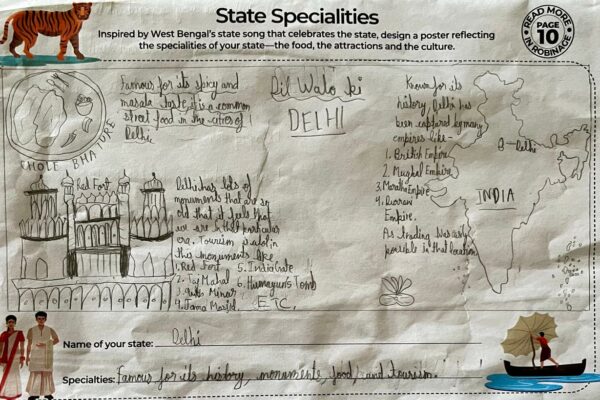 State Specialities
Inspired by West Bengal's state song that celebrates the state, design a poster reflecting
the specialities of your state—the food, the attractions and the culture.
READ MORE
PAGE
10
IN ROBINAGE
CHOLE BHATURE
Famous for its spicy and
masala taste, it is a common
street food in the cities of
Delhi.
Dil Walo ki
DELHI
Known for its
history, Delhi has
been captured by many
empires like -
1. British Empire
2. Mughal Empire
3. Maratha Empire
4.
Empire.
As trading was easily
possible in that location
Delhi
INDIA
Red Fort
Delhi has lots of
monuments that are so
old that it feels that
we are in that particular
era. Tourism is a lot in
this monuments like
1. Red Fort 5. India Gate
2. Taj Mahal 6. Humayun's Tomb
3. Qutb Minar
4. Jama Masjid. ETC.
Name of your state: Delhi
Specialties: Famous for its history, monuments, food, and tourism.